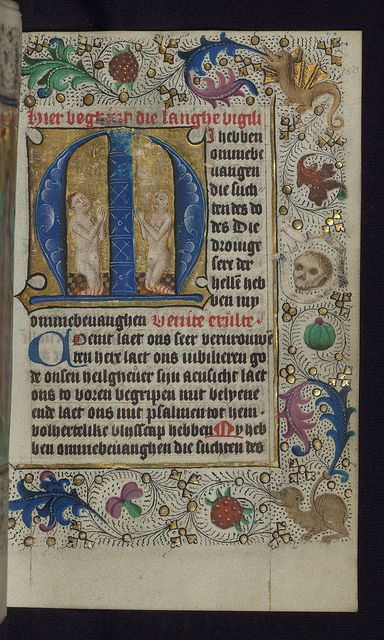 Hier begint die langhe vigili
M I hebben
ommebe
uangen
die such
ten des do
des Die
drouige
sere der
helle heb
ben my
ommebeuanghen Venite exulte.
Coemt laet ons seer verurouwe
ten here laet ons iubilieren go
de onsen heilgheuer sijn aensicht laet
ons te voren begripen mit belyene
ende laet ons mit psalmen tot hem
volhertelike blijsscap hebben My heb
ben ommebeuanghen die suchten des